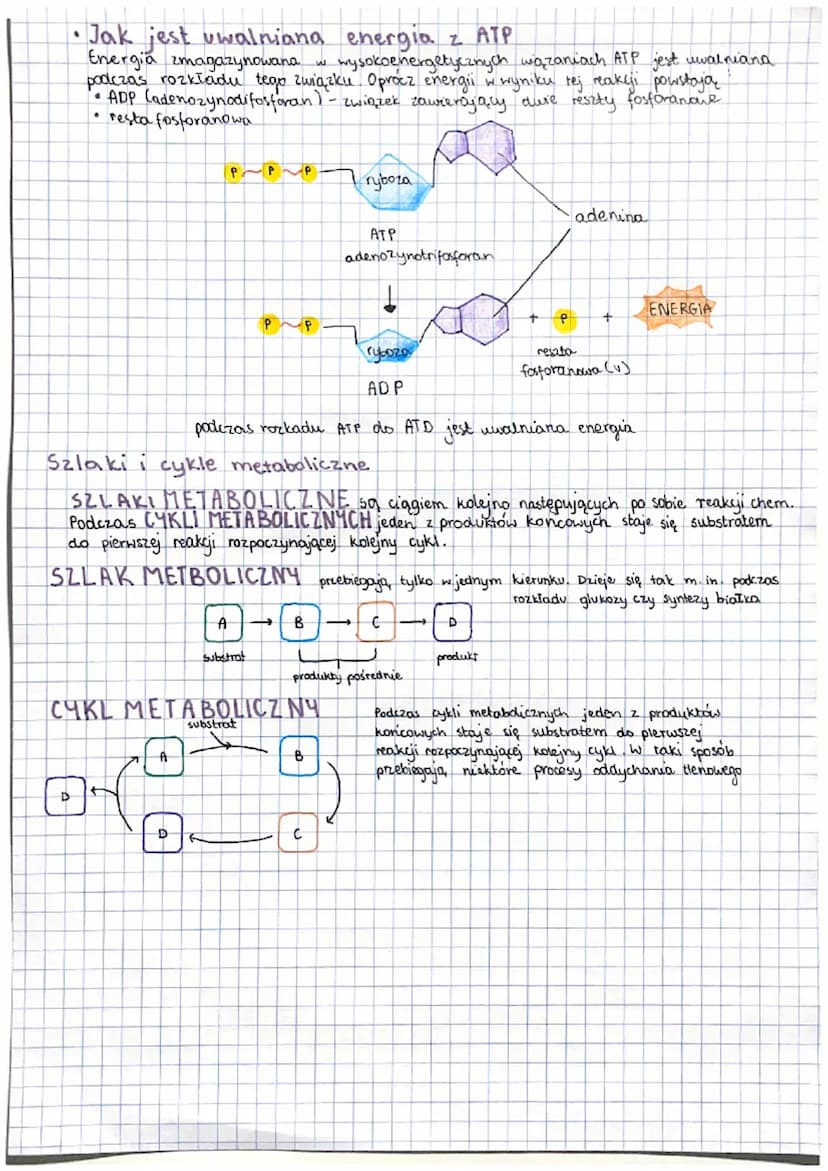 • Jak jest uwalniana energia z ATP
Energia zmagazynowana w wysokoenergetycznych wiązaniach ATP jest uwalniana
podczas rozkładu tego związku. Oprócz energii w wyniku tej reakcji powstają
• ADP (adenozynodifosforan) - związek zawierający dwie reszty fosforanowe
• reszta fosforanowa
P P P ryboza
adenina
ATP
adenozynotrifosforan
P P ryboza + P + ENERGIA
reszta
fosforanowa (V)
ADP
podczas rozkadu ATP do ATD jest uwalniana energia
Szlaki i cykle metaboliczne
SZLAKI METABOLICZNE są ciągiem kolejno następujących po sobie reakcji chem.
Podczas CYKLI METABOLICZNYCH jeden z produktów końcowych staje się substratem
do pierwszej reakcji rozpoczynającej kolejny cykl.
SZLAK METBOLICZNY przebiegają tylko w jednym kierunku. Dzieje się tak m.in. podczas
rozkładu glukozy czy syntezy białka
A → B → C → D
substrat
produkt
produkty pośrednie
CYKL METABOLICZNY
substrat
Podczas cykli metabolicznych jeden z produktów
końcowych staje się substratem do pierwszej
reakcji rozpoczynającej kolejny cykl. W taki sposób
przebiegają niektóre procesy oddychania tlenowego
A B
D
D C